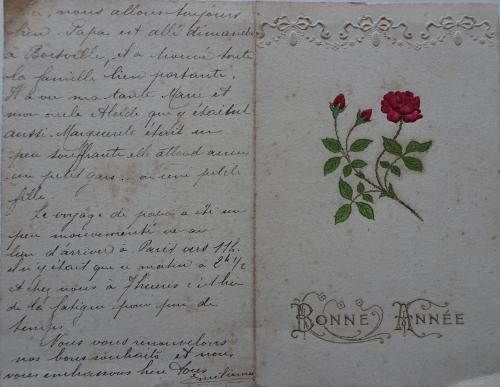 ici, nous allons toujours
bien. Papa est allé dimanche
à Boisville, il a trouvé toute
la famille bien portante.
Il a vu ma tante Marie et
mon oncle qui y étaient
aussi. Marguerite était un
peu souffrante elle attend
un petit gars... ou une petite
fille.
Le voyage de papa a été un
peu mouvementé car au
lieu d'arriver à Paris vers 11h.
il n'y était que ce matin à 2h 1/2
et chez nous à 7 heures c'est
de la fatigue pour peu de
temps.
Nous vous renouvelons
nos bons souhaits et nous
vous embrassons bien tous
BONNE ANNÉE